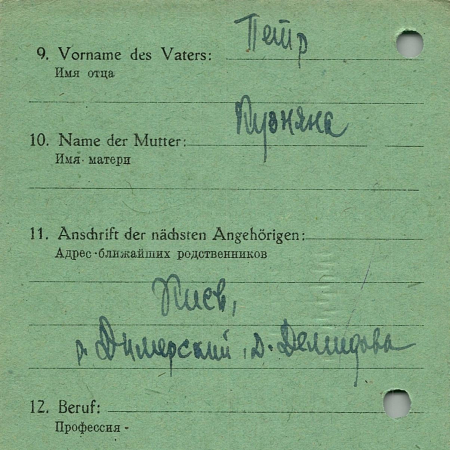 Петр
9. Vorname des Vaters:
Имя отца
10. Name der Mutter:
Имя матери
11. Anschrift der nächsten Angehörigen:
Адрес ближайших родственников
Киев,
р. Дымерский, д. Демидова
12. Beruf:
Профессия -